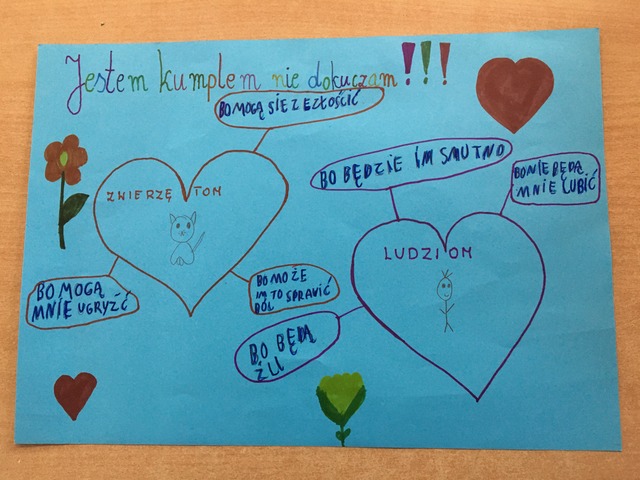 Jestem kumplem nie dokuczam!!!
BO MOGĄ SIĘ ZEZŁOŚCIĆ
BO BĘDZIE IM SMUTNO
BO NIE BĘDĄ
MNIE LUBIĆ
ZWIERZĘTOM
LUDZIOM
BO MOGĄ
MNIE UGRYŹĆ
BO MOŻE
IM TO SPRAWIĆ
BÓL
BO BĘDĄ
ŹLI